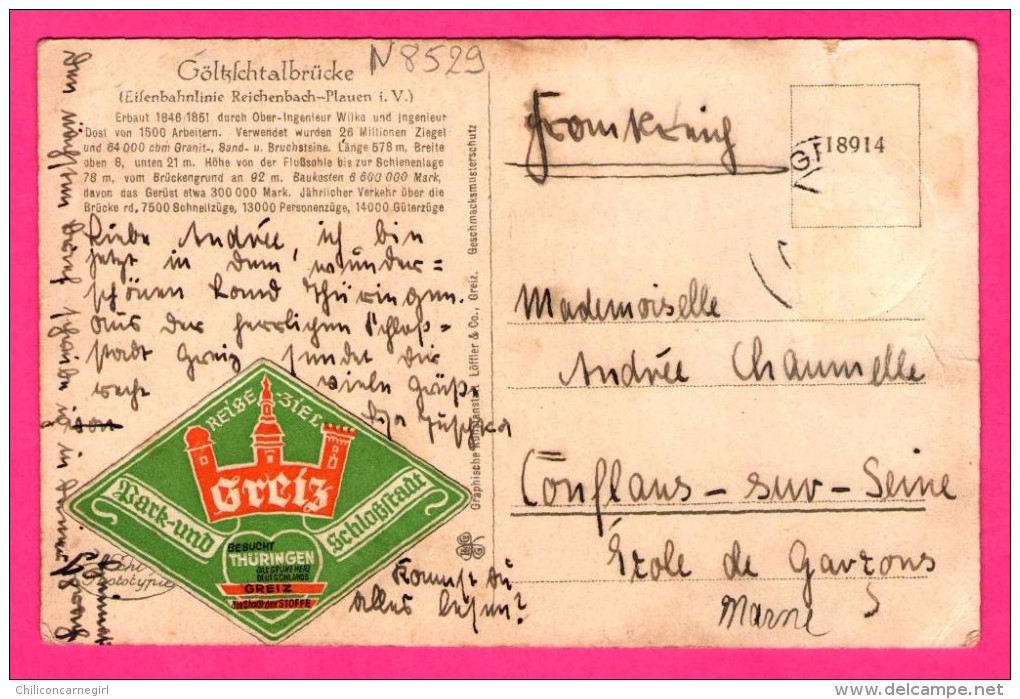 N 8529
Göltzschtalbrücke
(Eisenbahnlinie Reichenbach-Plauen i. V.)
Erbaut 1846/1851 durch Ober-Ingenieur Wilke und Ingenieur
Dost von 1500 Arbeitern. Verwendet wurden 26 Millionen Ziegel
und 64 000 cbm Granit-, Sand- u. Bruchsteine. Länge 578 m, Breite
oben 8, unten 21 m. Höhe von der Flußsohle bis zur Schienenlage
78 m, vom Brückengrund an 92 m. Baukosten 6 600 000 Mark,
davon das Gerüst etwa 300 000 Mark. Jährlicher Verkehr über die
Brücke rd. 7500 Schnellzüge, 13000 Personenzüge, 14000 Güterzüge
Liebe Andrée, ich bin
jetzt in dem wunder=
schönen Land Thüringen.
Aus der herrlichen Schloß=
stadt Greiz sendet dir
recht vielen Grüße
REISE ZIEL
Greiz
Park- und Schloßstadt
BESUCHT
THÜRINGEN
DAS GRÜNE HERZ
DEUTSCHLANDS
GREIZ
DIE STADT DER STOFFE
Echt
Prototypie
Kannst du
alles lesen?
Graphische Kunstanstalt Löffler & Co., Greiz. Geschmacksmusterschutz
Frankreich
18914
Mademoiselle
Andrée Chaumelle
Conflans-sur-Seine
École de Garçons
Marne
Chiliconcarnegirl
www.delcampe.net